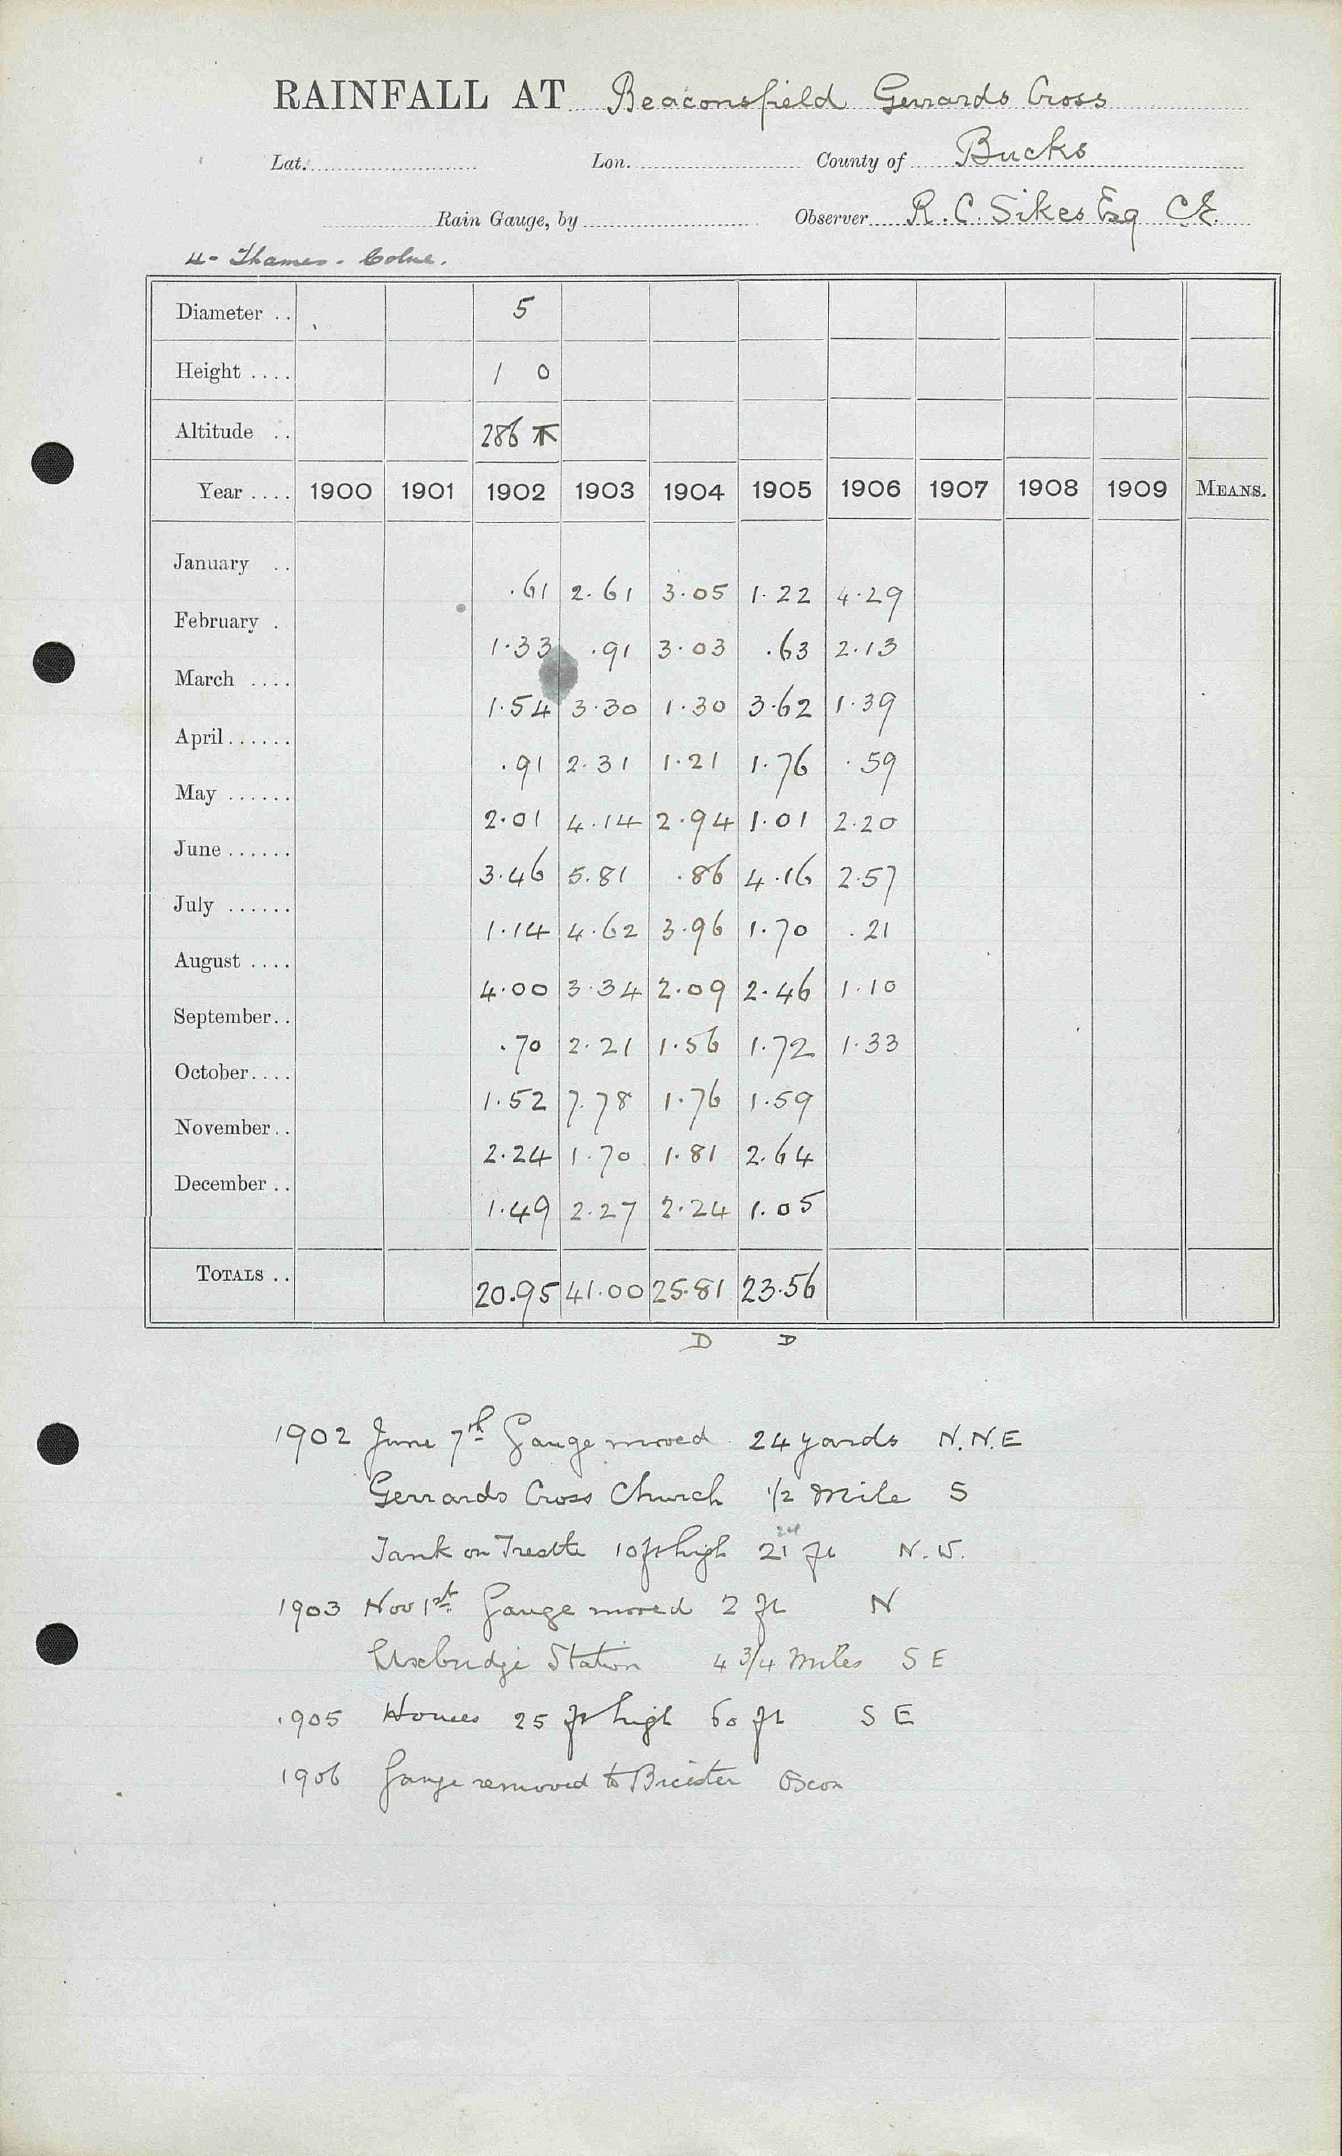 RAINFALL AT Beaconsfield Gerrards Cross
Lat. Lon. County of Bucks
Rain Gauge, by Observer R. C. Sikes Esq C.E.
4 - Thames - Colne.
Diameter .. 5
Height .... 1 0
Altitude .. 286
Year .... 1900 1901 1902 1903 1904 1905 1906 1907 1908 1909 MEANS.
January .. .61 2.61 3.05 1.22 4.29
February . 1.33 .91 3.03 .63 2.13
March .... 1.54 3.30 1.30 3.62 1.39
April...... .91 2.31 1.21 1.76 .59
May ...... 2.01 4.14 2.94 1.01 2.20
June ...... 3.46 5.81 .86 4.16 2.57
July ...... 1.14 4.62 3.96 1.70 .21
August .... 4.00 3.34 2.09 2.46 1.10
September.. .70 2.21 1.56 1.72 1.33
October.... 1.52 7.78 1.76 1.59
November.. 2.24 1.70 1.81 2.64
December .. 1.49 2.27 2.24 1.05
TOTALS .. 20.95 41.00 25.81 23.56
D D
1902 June 7th Gauge moved 24 yards N.N.E
Gerrards Cross Church 1/2 Mile S
Tank on Trestle 10 ft high 21 ft N.W.
1903 Nov 1st Gauge moved 2 ft N
Uxbridge Station 4 3/4 Miles S E
1905 Houses 25 ft high 60 ft S E
1906 Gauge removed to Bicester Oxon